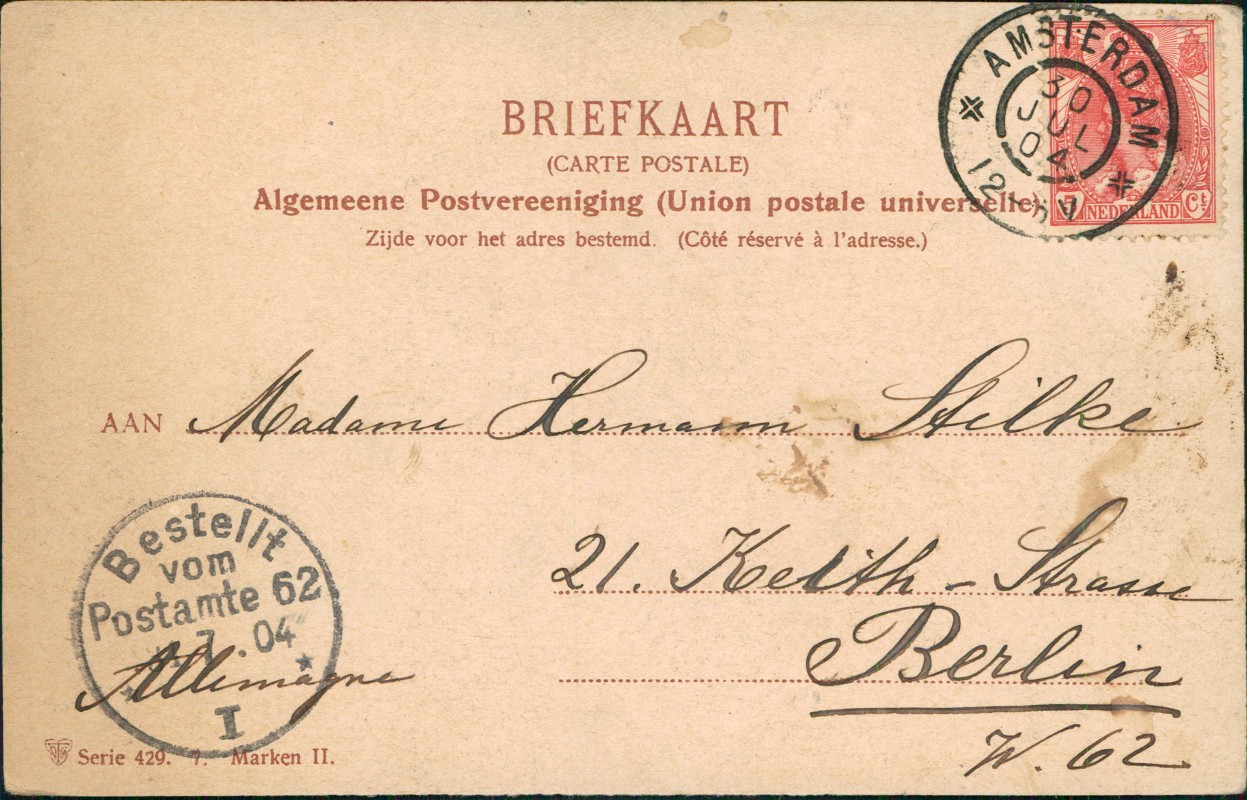 BRIEFKAART
(CARTE POSTALE)
Algemeene Postvereeniging (Union postale universelle).
Zijde voor het adres bestemd. (Côté réservé à l'adresse.)
AMSTERDAM
30
JUL
04
12
NEDERLAND
7 Ct
AAN Madame Hermann Stilke
21. Keith-Strasse
Berlin
W. 62
Allemagne
Bestellt
vom
Postamte 62
7. 04
I
Serie 429. 7. Marken II.